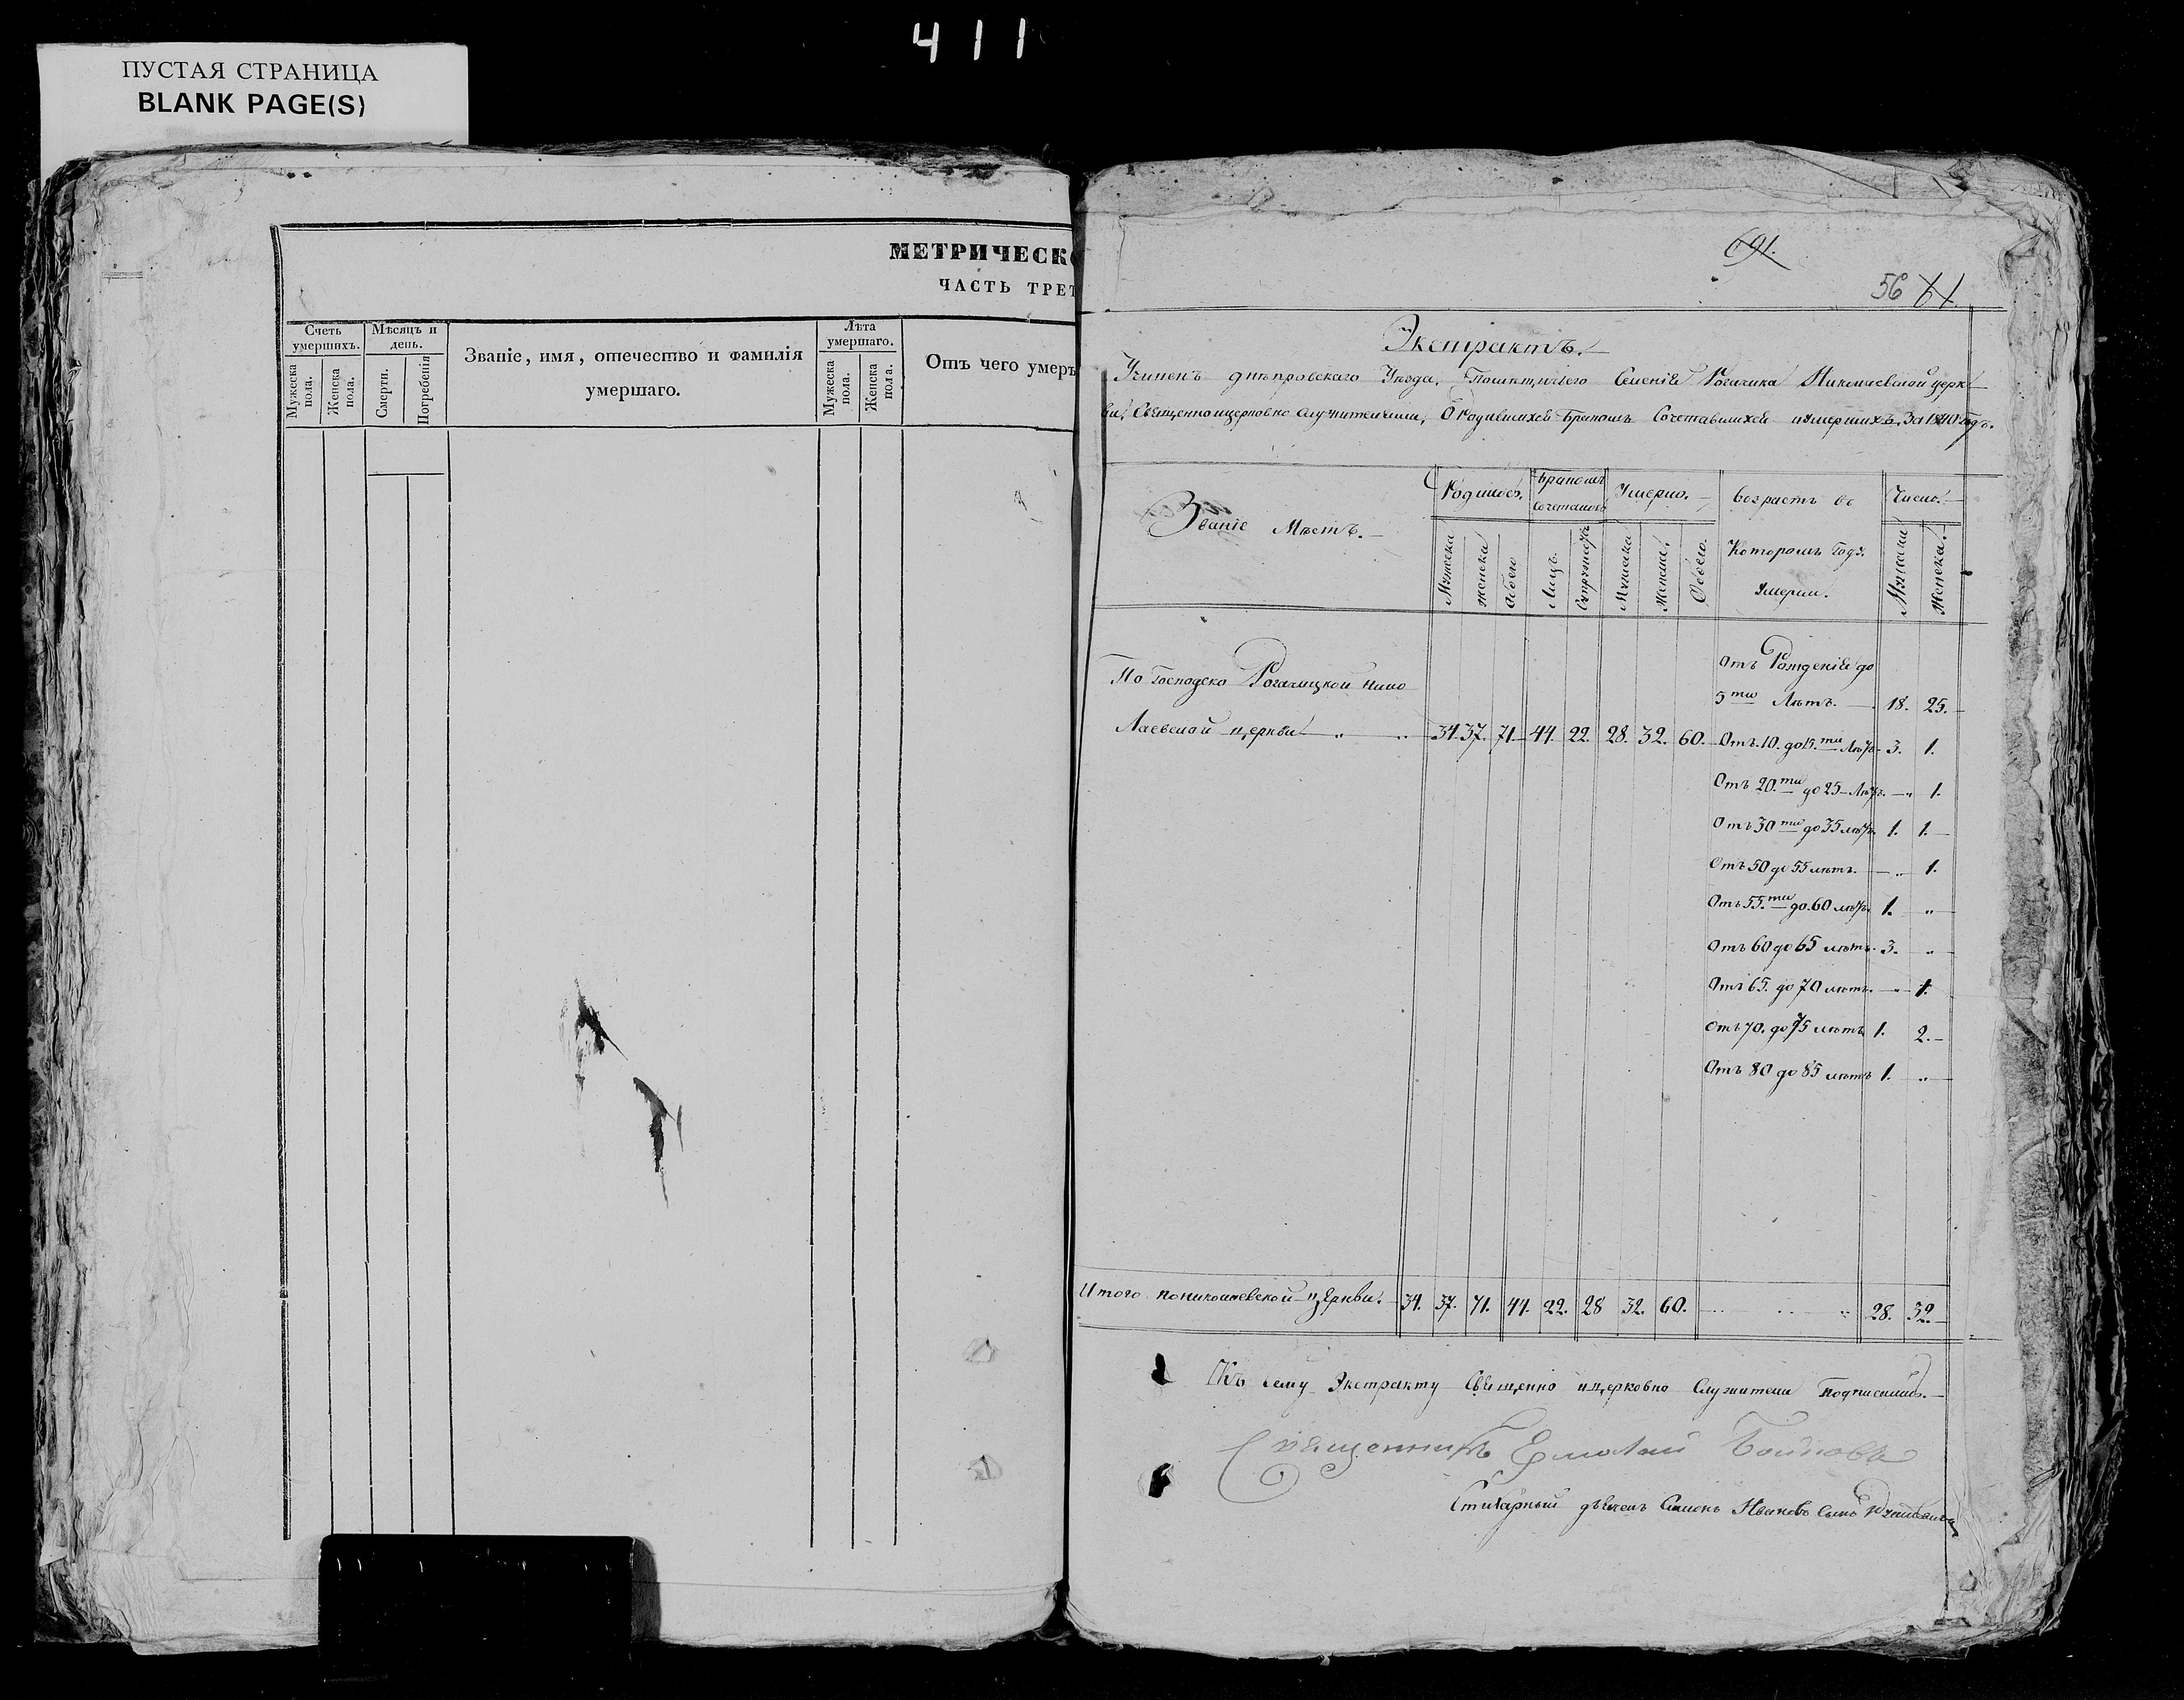 411
ПУСТАЯ СТРАНИЦА
BLANK PAGE(S)
МЕТРИЧЕСК
ЧАСТЬ ТРЕТ
Счеть умершихъ.
Мужеска пола.
Женска пола.
Мѣсяцъ и день.
Смерти.
Погребенія
Званіе, имя, отечество и фамилія
умершаго.
Лѣта умершаго.
Мужеска пола.
Женска пола.
Отъ чего умеръ
691.
56 61.
Экстрактъ.
Учиненъ днѣпровскаго Уѣзда, Селенія Рогачика Николаевской церк
ви, Священноицерковно служителями, О Родившихся Бракомъ Сочетавшихся иумершихъ, За 1840 Годъ.
Званіе Мѣстъ.
Родилось.
Мужеска
женска
Обоего
Бракомъ сочеталось
Лицъ.
Супружествъ
Умерло.
Мужеска
Женска.
Обоего.
возрастъ въ
Которомъ Годѣ.
Умерли.
Число.
Мужеска
Женска.
По Господско Рогачицкой Нико
Лаевской церкви „ „ 34. 37. 71. 44. 22. 28. 32. 60.
Отъ Рожденія до
5ти Лѣтъ. 18. 25.
Отъ 10. до 15.ти Лѣтъ 3. 1.
Отъ 20.ти до 25 Лѣтъ. „ 1.
Отъ 30ти до 35 лѣтъ. 1. 1.
Отъ 50 до 55 лѣтъ. „ 1.
Отъ 55.ти до 60 лѣтъ. 1. „
Отъ 60 до 65 лѣтъ. 3. „
Отъ 65. до 70 лѣтъ. „ 1.
Отъ 70. до 75 лѣтъ 1. 2.
Отъ 80 до 85 лѣтъ 1. „
Итого поНиколаевской церкви. 34. 37. 71. 44. 22. 28 32. 60. „ 28. 32.
Къ сему Экстракту Священно ицерковно Служители подписались.
Священникъ Ермолай Бойковъ
Стихарный дьячекъ Семенъ Ивановъ сынъ